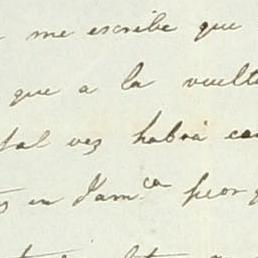 me escribe que
que a la vuelt
tal vez habrá
en Jam.ca peor